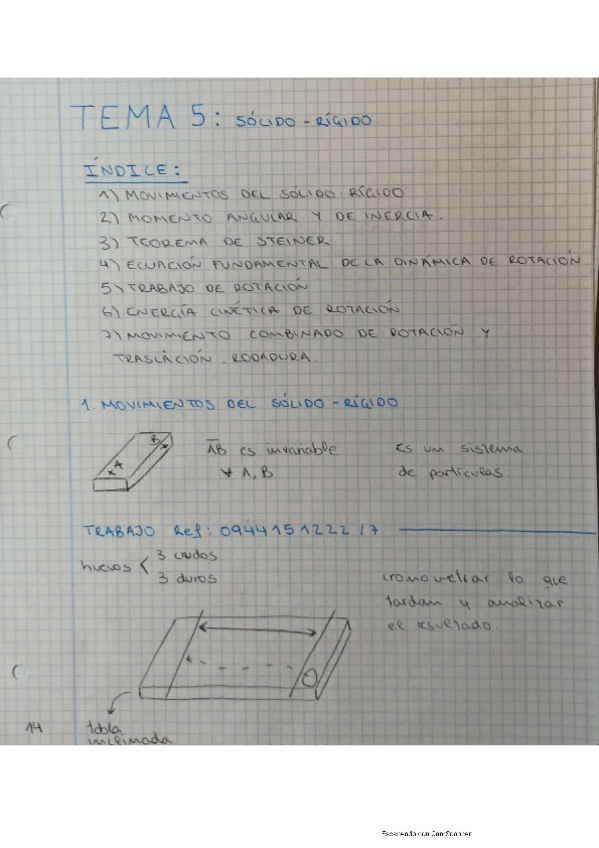 TEMA 5: SÓLIDO-RÍGIDO
ÍNDICE:
1) MOVIMIENTOS DEL SÓLIDO-RÍGIDO
2) MOMENTO ANGULAR Y DE INERCIA.
3) TEOREMA DE STEINER
4) ECUACIÓN FUNDAMENTAL DE LA DINÁMICA DE ROTACIÓN
5) TRABAJO DE ROTACIÓN
6) ENERGÍA CINÉTICA DE ROTACIÓN
7) MOVIMIENTO COMBINADO DE ROTACIÓN Y
TRASLACIÓN. RODADURA.
1. MOVIMIENTOS DEL SÓLIDO-RÍGIDO
A
B
AB es invariable
∀ A, B
Es un sistema
de partículas.
TRABAJO Ref: 094415122217
huevos < 3 crudos
3 duros
cronometrar lo que
tardan y analizar
el resultado.
14
tabla
inclinada
Escaneado con CamScanner